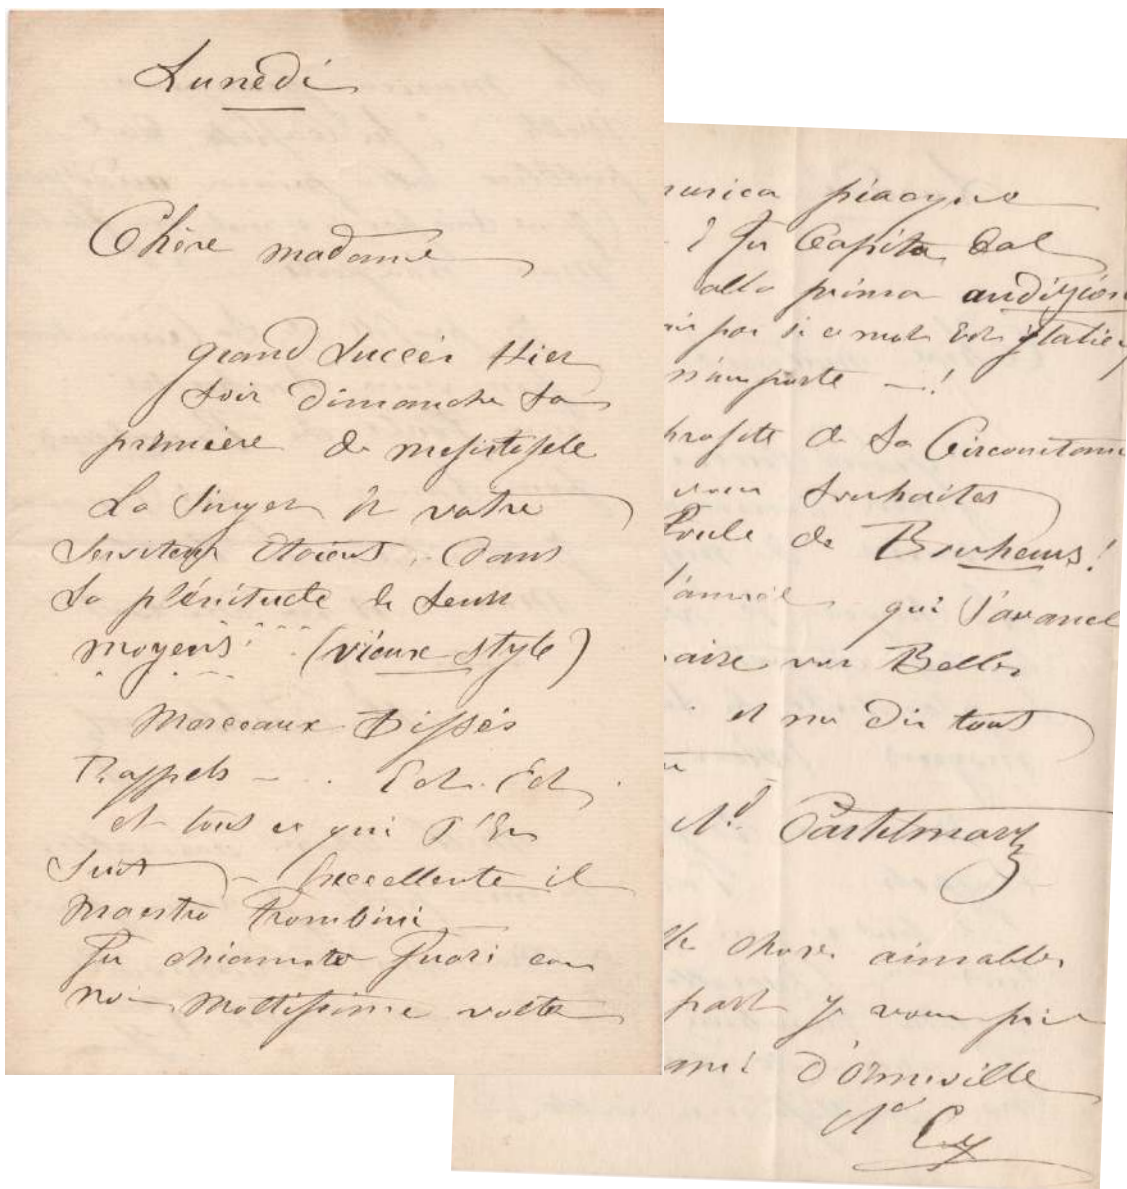 Lunedi
Chère madame
grand Succès Hier
Soir dimanche La
première de mefistofele
La Singer et votre
Serviteur étaient dans
La plénitude de Leurs
moyens (vieux Style)
Morceaux Bissés
Rappels - . . Ect. Ect.
et tout ce qui S'En
Suit - Excellente il
Maestro Trombini
Fu chiamato Fuori con
noi Moltissime volte
musica piacque
E fu Capita Dal
alla prima audizion
pas si ce mot Est italien
n'importe - !
profite de La Circonstance
vous Souhaiter
Foule de Bonheurs!
l'année qui S'avance
vos Belles
et me dis tout
Ad. Castelmary
choses aimables
part je vous prie
ami d'Orneville
Ad Cy